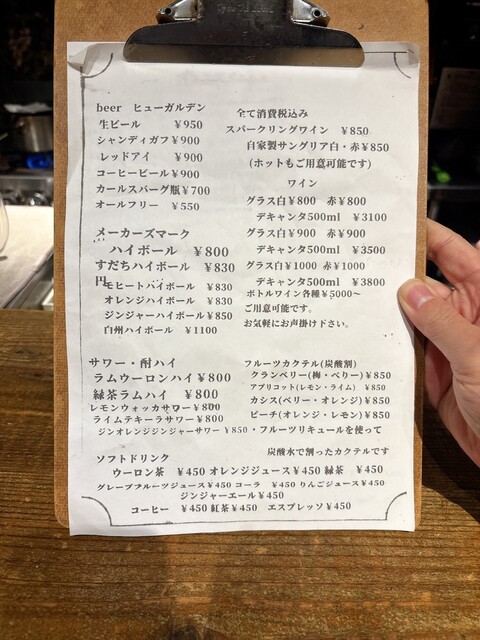 beer ヒューガルデン
生ビール ￥950
シャンディガフ￥900
レッドアイ ￥900
コーヒービール￥900
カールスバーグ瓶￥700
オールフリー ￥550
メーカーズマーク
ハイボール ￥800
すだちハイボール ￥830
円
モヒートハイボール ￥830
オレンジハイボール ￥830
ジンジャーハイボール￥850
白州ハイボール ￥1100
サワー・酎ハイ
ラムウーロンハイ￥800
緑茶ラムハイ ￥800
レモンウォッカサワー￥800
ライムテキーラサワー￥800
ジンオレンジジンジャーサワー ￥850
全て消費税込み
スパークリングワイン ￥850
自家製サングリア白・赤￥850
(ホットもご用意可能です)
ワイン
グラス白￥800 赤￥800
デキャンタ500ml ￥3100
グラス白￥900 赤￥900
デキャンタ500ml ￥3500
グラス白￥1000 赤￥1000
デキャンタ500ml ￥3800
ボトルワイン各種￥5000〜
ご用意可能です。
お気軽にお声掛け下さい。
フルーツカクテル(炭酸割)
クランベリー(梅・べりー)￥850
アプリコット(レモン・ライム) ￥850
カシス(ベリー・オレンジ)￥850
ピーチ(オレンジ・レモン)￥850
・フルーツリキュールを使って
炭酸水で割ったカクテルです
ソフトドリンク
ウーロン茶 ￥450 オレンジジュース￥450 緑茶 ￥450
グレープフルーツジュース￥450 コーラ ￥450 りんごジュース￥450
ジンジャーエール￥450
コーヒー ￥450 紅茶￥450 エスプレッソ￥450